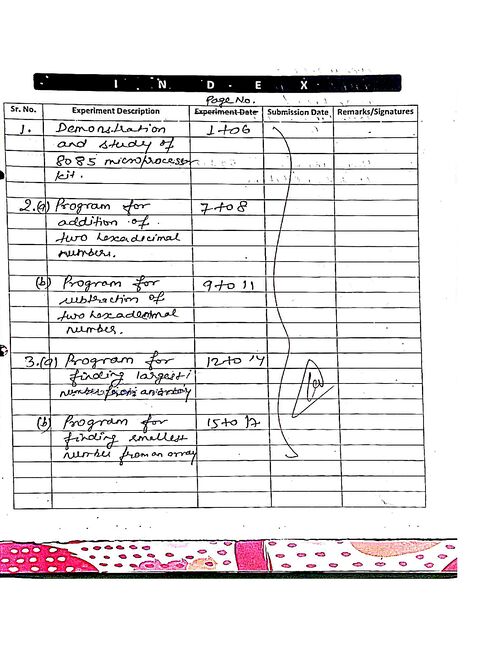 I N D E X
Page No.
Sr. No. Experiment Description Experiment Date Submission Date Remarks/Signatures
1. Demonstration 1 to 6
and study of
8085 microprocessor
kit.
2.(a) Program for 7 to 8
addition of
two hexadecimal
numbers.
(b) Program for 9 to 11
subtraction of
two hexadecimal
number.
3.(a) Program for 12 to 14
finding largest
number from an array
(b) Program for 15 to 17
finding smallest
number from an array